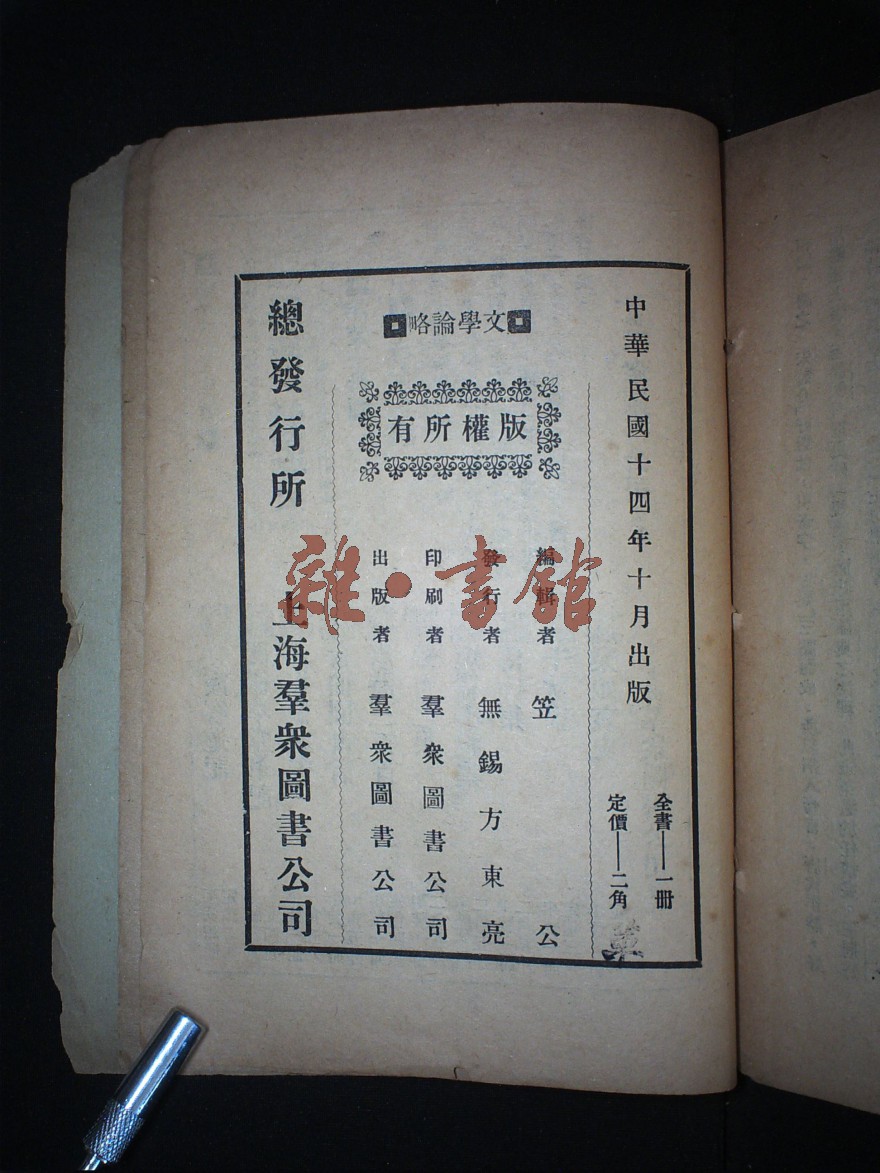 中華民國十四年十月出版
全書——一冊
定價——二角
文學論略
版權所有
編輯者 笠公
發行者 無錫方東亮
印刷者 羣衆圖書公司
出版者 羣衆圖書公司
總發行所 上海羣衆圖書公司
雜·書館